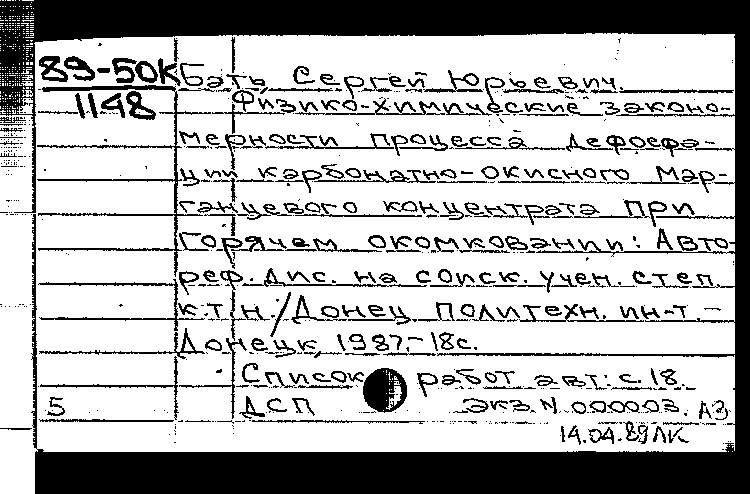 89-50К
1148
Бать, Сергей Юрьевич.
Физико-химические законо-
мерности процесса дефосфа-
ции карбонатно-окисного мар-
ганцевого концентрата при
горячем окомковании: Авто-
реф. дис. на соиск. учен. степ.
к.т.н. / Донец. политехн. ин-т. –
Донецк, 1987. – 18с.
Список работ авт.: с. 18.
5 ДСП Экз. N 000003. АЗ
14.04.89ЛК